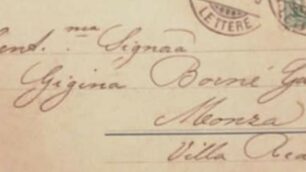 LETTERE
Gent.ma Signa
Gigina Borné Ga
Monza
Villa Rea